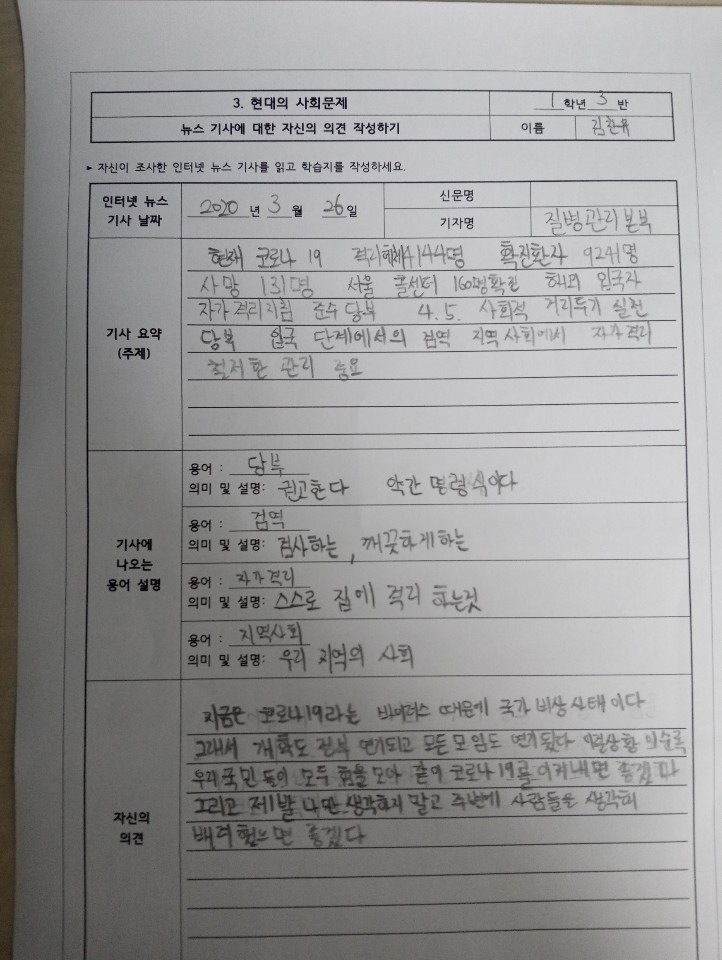 3. 현대의 사회문제
1학년 3 반
뉴스 기사에 대한 자신의 의견 작성하기
이름
► 자신이 조사한 인터넷 뉴스 기사를 읽고 학습지를 작성하세요.
인터넷 뉴스
기사 날짜
2020 년 3 월 26일
신문명
기자명
질병관리본부
기사 요약
(주제)
현재 코로나 19 격리해제 4144명 확진환자 9241명
사망 131명 서울 콜센터 160명확진 해외 입국자
자가격리지침 준수 당부 4.5. 사회적 거리두기 실천
당부 입국 단계에서의 검역 지역사회에서 자가격리
철저환 관리 중요
기사에
나오는
용어 설명
용어 : 당부
의미 및 설명: 권고한다 약간 명령식이다
용어 : 검역
의미 및 설명: 검사하는, 깨끗하게하는
용어 : 자가격리
의미 및 설명: 스스로 집에 격리 하는것
용어 : 지역사회
의미 및 설명: 우리 지역의 사회
자신의
의견
지금은 코로나19라는 바이러스 때문에 국가 비상사태이다
그래서 개학도 전부 연기되고 모든 모임도 연기됬다 이럴상황 일수록
우리 국민들이 모두 힘을 모아 같이 코로나19를 이겨내면 좋겠다
그리고 제발 나만 생각하지 말고 주변에 사람들을 생각해
배려했으면 좋겠다